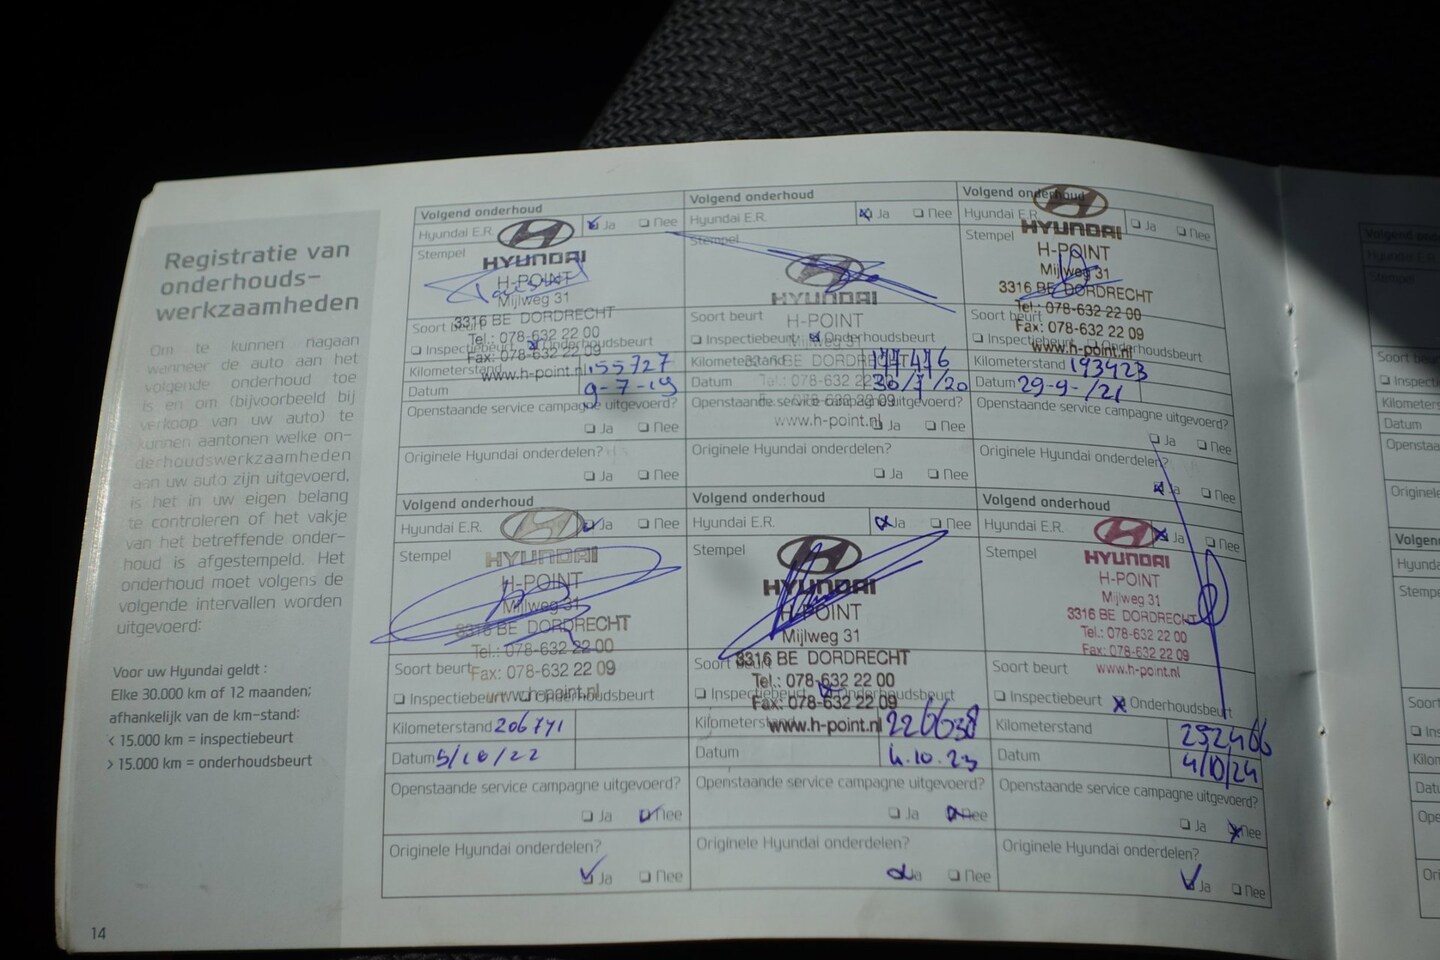 Registratie van
onderhouds-
werkzaamheden
Om te kunnen nagaan
wanneer de auto aan het
volgende onderhoud toe
is en om (bijvoorbeeld bij
verkoop van uw auto) te
kunnen aantonen welke on-
derhoudswerkzaamheden
aan uw auto zijn uitgevoerd,
is het in uw eigen belang
te controleren of het vakje
van het betreffende onder-
houd is afgestempeld. Het
onderhoud moet volgens de
volgende intervallen worden
uitgevoerd:
Voor uw Hyundai geldt :
Elke 30.000 km of 12 maanden;
afhankelijk van de km-stand:
< 15.000 km = inspectiebeurt
> 15.000 km = onderhoudsbeurt
14
Volgend onderhoud
Hyundai E.R. Ja Nee
Stempel
HYUNDAI
H-POINT
Mijlweg 31
3316 BE DORDRECHT
Tel.: 078-632 22 00
Fax: 078-632 22 09
www.h-point.nl
Soort beurt
Inspectiebeurt Onderhoudsbeurt
Kilometerstand 155727
Datum 9-7-19
Openstaande service campagne uitgevoerd?
Ja Nee
Originele Hyundai onderdelen?
Ja Nee
Volgend onderhoud
Hyundai E.R. Ja Nee
Stempel
HYUNDAI
H-POINT
Mijlweg 31
3316 BE DORDRECHT
Tel.: 078-632 22 00
Fax: 078-632 22 09
www.h-point.nl
Soort beurt
Inspectiebeurt Onderhoudsbeurt
Kilometerstand 177476
Datum 30/7/20
Openstaande service campagne uitgevoerd?
Ja Nee
Originele Hyundai onderdelen?
Ja Nee
Volgend onderhoud
Hyundai E.R. Ja Nee
Stempel
HYUNDAI
H-POINT
Mijlweg 31
3316 BE DORDRECHT
Tel.: 078-632 22 00
Fax: 078-632 22 09
www.h-point.nl
Soort beurt
Inspectiebeurt Onderhoudsbeurt
Kilometerstand 193423
Datum 29-9-/21
Openstaande service campagne uitgevoerd?
Ja Nee
Originele Hyundai onderdelen?
Ja Nee
Volgend onderhoud
Hyundai E.R. Ja Nee
Stempel
HYUNDAI
H-POINT
Mijlweg 31
3316 BE DORDRECHT
Tel.: 078-632 22 00
Fax: 078-632 22 09
www.h-point.nl
Soort beurt
Inspectiebeurt Onderhoudsbeurt
Kilometerstand 206771
Datum 5/10/22
Openstaande service campagne uitgevoerd?
Ja Nee
Originele Hyundai onderdelen?
Ja Nee
Volgend onderhoud
Hyundai E.R. Ja Nee
Stempel
HYUNDAI
H-POINT
Mijlweg 31
3316 BE DORDRECHT
Tel.: 078-632 22 00
Fax: 078-632 22 09
www.h-point.nl
Soort beurt
Inspectiebeurt Onderhoudsbeurt
Kilometerstand 226638
Datum 4.10.23
Openstaande service campagne uitgevoerd?
Ja Nee
Originele Hyundai onderdelen?
Ja Nee
Volgend onderhoud
Hyundai E.R. Ja Nee
Stempel
HYUNDAI
H-POINT
Mijlweg 31
3316 BE DORDRECHT
Tel.: 078-632 22 00
Fax: 078-632 22 09
www.h-point.nl
Soort beurt
Inspectiebeurt Onderhoudsbeurt
Kilometerstand 252466
Datum 4/10/24
Openstaande service campagne uitgevoerd?
Ja Nee
Originele Hyundai onderdelen?
Ja Nee